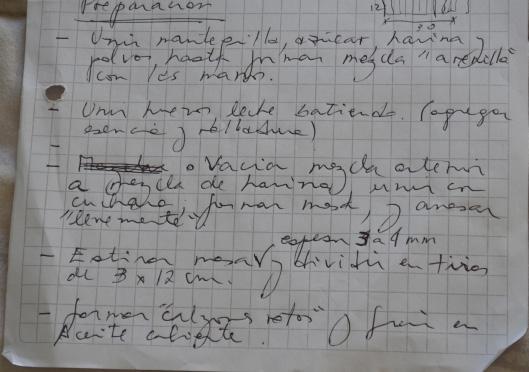 Preparación
12
20
- Unir mantequilla, azúcar, harina y
polvos, hasta formar mezcla "arenilla"
con las manos.
- Unir huevos, leche batiendo. (agregar
esencia y ralladura)
- Vaciar mezcla anterior
a mezcla de harina, unir con
cuchara, formar masa, y amasar
"levemente"
espesor 3 a 4 mm
- Estirar masa y dividir en tiras
de 3 x 12 cm.
- formar "calzones rotos" y freir en
Aceite caliente.